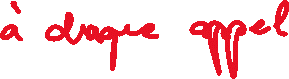 à chaque appel